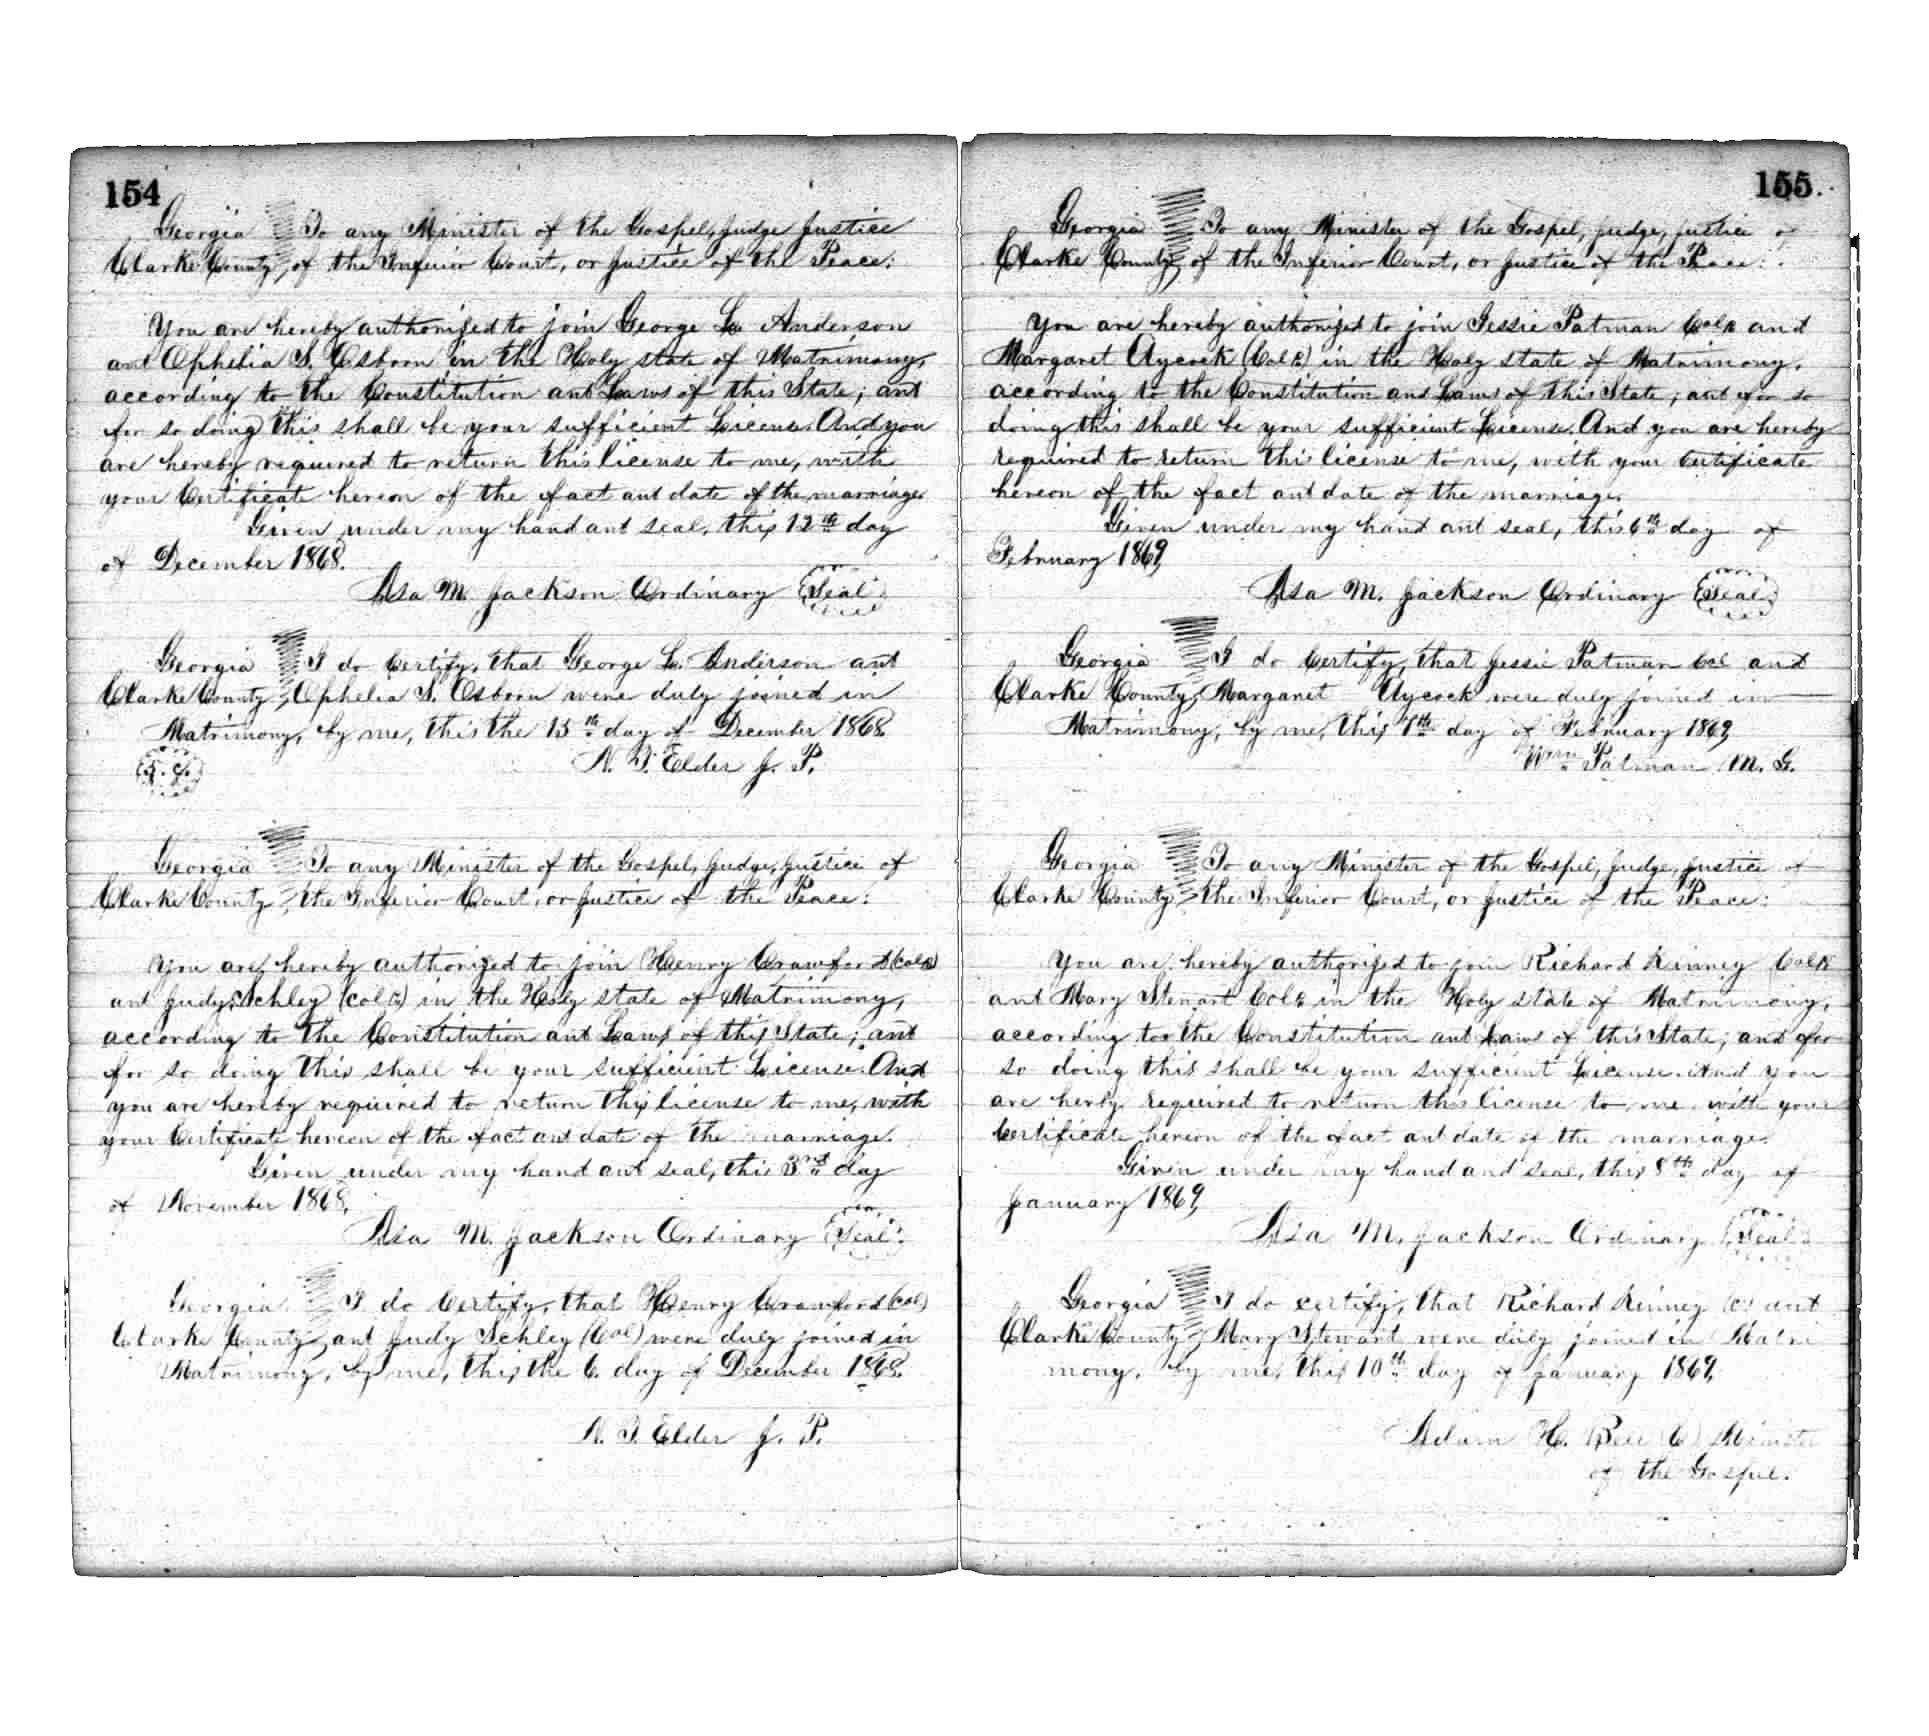 154
Georgia To any Minister of the Gospel, Judge Justice
Clarke County, of the Inferior Court, or Justice of the Peace:
You are hereby authorized to join George L. Anderson
and Ophelia S. Osborn in the Holy state of Matrimony,
according to the Constitution and Laws of this State; and
for so doing this shall be your sufficient License. And you
are hereby required to return this license to me, with
your Certificate hereon of the fact and date of the marriage.
Given under my hand and seal, this 12th day
of December 1868.
Asa M. Jackson Ordinary Seal
Georgia I do Certify, that George L. Anderson and
Clarke County, Ophelia S. Osborn were duly joined in
Matrimony, by me, this the 13th day of December 1868.
N. T. Elder J. P.
Georgia To any Minister of the Gospel, Judge, Justice of
Clarke County, the Inferior Court, or Justice of the Peace:
You are hereby authorized to join Henry Crawford (Cold)
and Judy Schley (cold) in the Holy state of Matrimony,
according to the Constitution and Laws of this State; and
for so doing this shall be your sufficient License. And
you are hereby required to return this license to me, with
your Certificate hereon of the fact and date of the marriage.
Given under my hand and seal, this 3nd day
of November 1868.
Asa M. Jackson Ordinary Seal
Georgia I do Certify, that Henry Crawford (col)
Clarke County, and Judy Schley (Col) were duly joined in
Matrimony, by me, this the 6. day of December 1868.
N. T. Elder J. P.
155.
Georgia To any Minister of the Gospel, Judge, Justice of
Clarke County, of the Inferior Court, or Justice of the Peace:
You are hereby authorized to join Jessie Patman Cold and
Margaret Aycock (Cold) in the Holy state of Matrimony,
according to the Constitution and Laws of this State; and for so
doing this shall be your sufficient License. And you are hereby
required to return this license to me, with your Certificate
hereon of the fact and date of the marriage.
Given under my hand and seal, this 6th day of
February 1869,
Asa M. Jackson Ordinary Seal
Georgia I do Certify, that Jessie Patman Col and
Clarke County, Margaret Aycock were duly joined in
Matrimony, by me, this 7th day of February 1869,
Wm Patman M. G.
Georgia To any Minister of the Gospel, Judge, Justice of
Clarke County, the Inferior Court, or Justice of the Peace:
You are hereby authorized to join Richard Kinney Cold
and Mary Stewart Cold in the Holy state of Matrimony,
according to the Constitution and Laws of this State; and for
so doing this shall be your sufficient License. And you
are herby required to return this license to me, with your
Certificate hereon of the fact and date of the marriage.
Given under my hand and seal, this 8th day of
January 1869,
Asa M. Jackson Ordinary Seal
Georgia I do certify, that Richard Kinney (c) and
Clarke County, Mary Stewart were duly joined in Matri
mony, by me, this 10th day of January 1869,
Adam H. (C) Minister
of the Gospel.